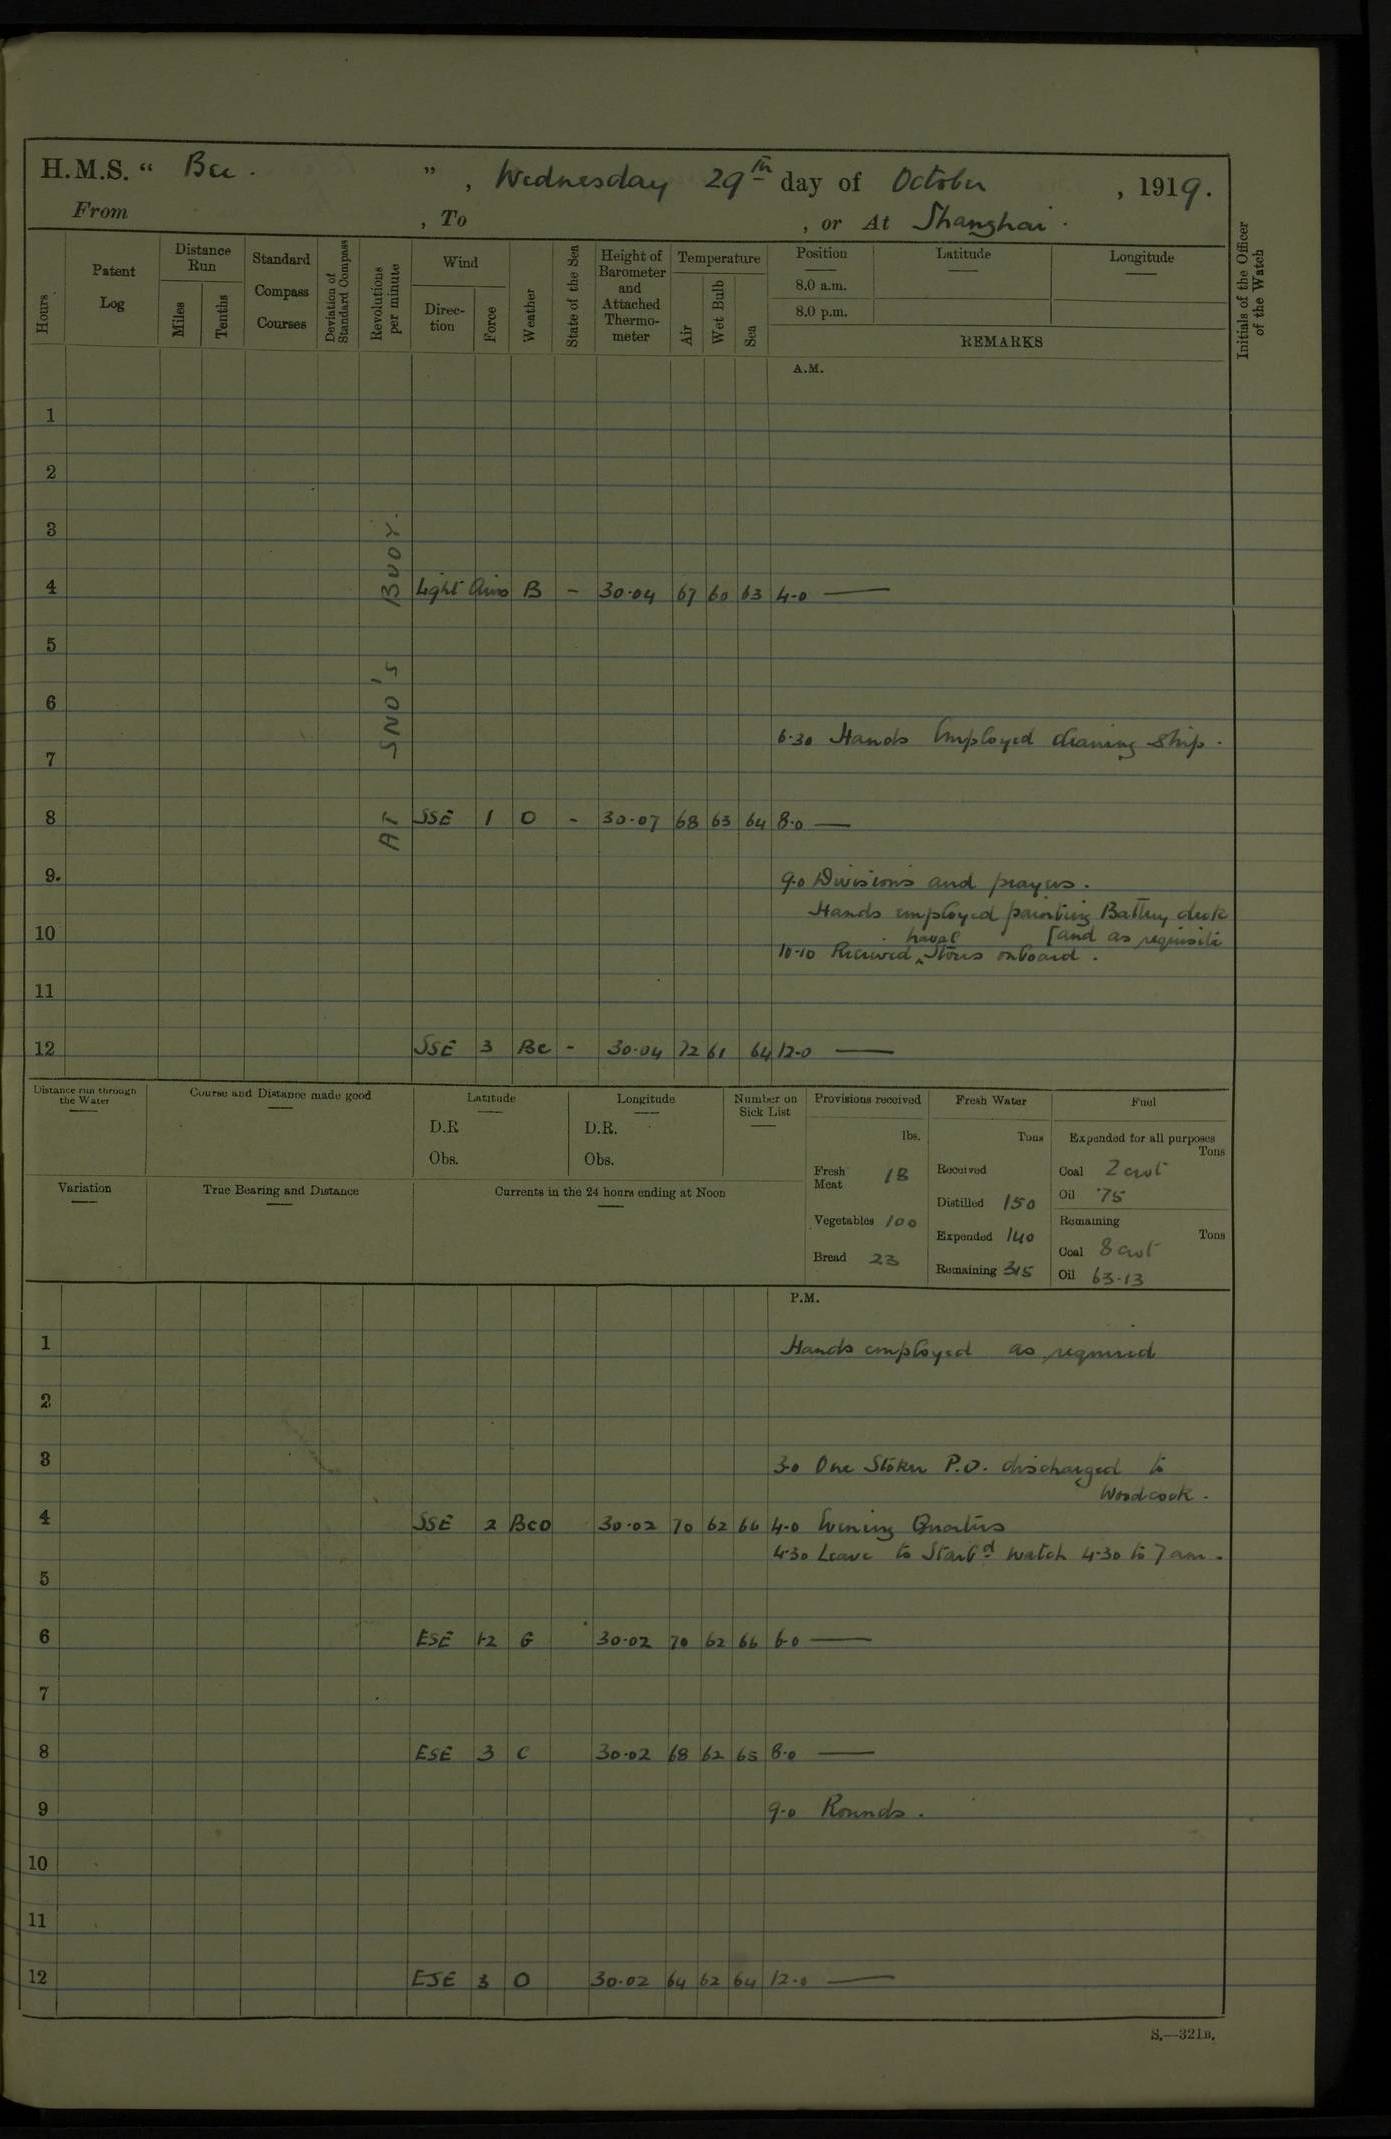 H.M.S. “ Bee . ” , Wednesday 29th day of October , 1919.
From , To , or At Shanghai .
Hours
Patent Log
Distance Run
Miles
Tenths
Standard Compass Courses
Deviation of Standard Compass
Revolutions per minute
Wind
Direction
Force
Weather
State of the Sea
Height of Barometer and Attached Thermometer
Temperature
Air
Wet Bulb
Sea
Position
8.0 a.m.
8.0 p.m.
Latitude
Longitude
REMARKS
Initials of the Officer of the Watch
A.M.
AT SNO's BUOY.
1
2
3
4 Light Airs B - 30.04 67 60 63 4.0 —
5
6
6.30 Hands Employed cleaning ship .
7
8 SSE 1 O - 30.07 68 63 64 8.0 —
9. 9.0 Divisions and prayers .
Hands employed painting Battery deck
10 [and as requisite
10.10 Received naval Stores onboard .
11
12 SSE 3 BC - 30.04 72 61 64 12.0 —
Distance run through the Water
Course and Distance made good
Latitude
D.R
Obs.
Longitude
D.R.
Obs.
Number on Sick List
Provisions received
lbs.
Fresh Meat 18
Vegetables 100
Bread 23
Fresh Water
Tons
Received
Distilled 150
Expended 140
Remaining 315
Fuel
Expended for all purposes
Tons
Coal 2 cwt
Oil .75
Remaining
Tons
Coal 8 cwt
Oil 63.13
Variation
True Bearing and Distance
Currents in the 24 hours ending at Noon
P.M.
1 Hands employed as required
2
3 3.0 One Stoker P.O. discharged to
Woodcock .
4 SSE 2 BCO 30.02 70 62 66 4.0 Evening Quarters
4.30 Leave to Starbd watch 4.30 to 7 am .
5
6 ESE 1-2 G 30.02 70 62 66 6.0 —
7
8 ESE 3 C 30.02 68 62 65 8.0 —
9 9.0 Rounds .
10
11
12 ESE 3 O 30.02 64 62 64 12.0 —
S.—321B.